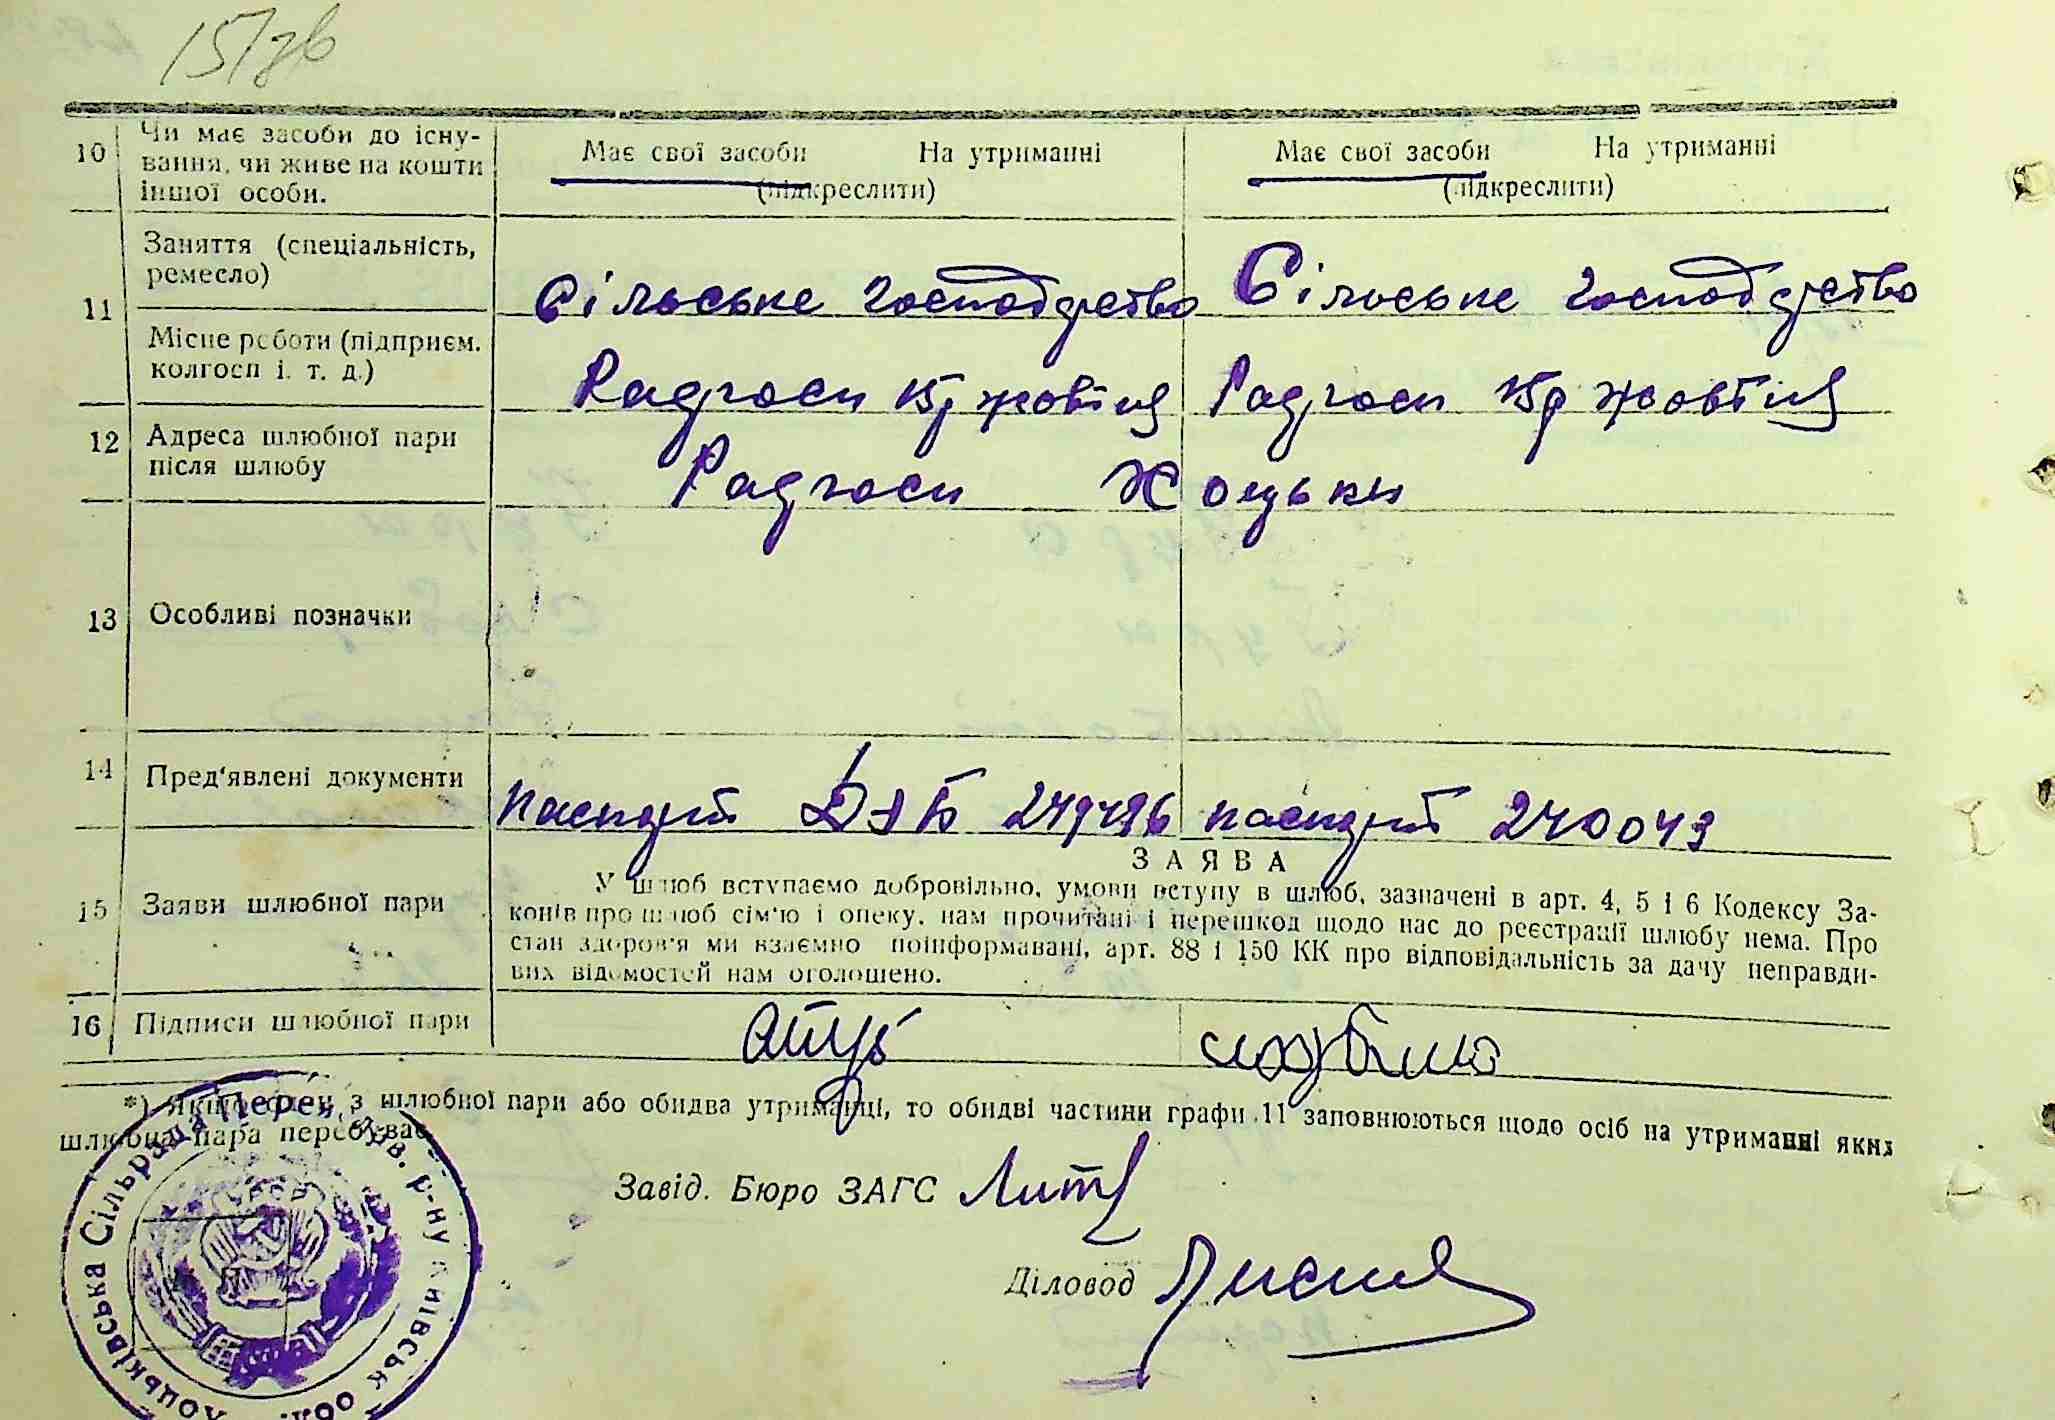 15/зв
10 Чи має засоби до існу-
вання, чи живе на кошти
іншої особи.
Має свої засоби На утриманні
(підкреслити)
Має свої засоби На утриманні
(підкреслити)
11 Заняття (спеціальність,
ремесло)
Сільське господрство Сільське господрство
Місце роботи (підприєм.
колгосп і. т. д.)
Радгосп Кр жовтня Радгосп Кр жовтня
12 Адреса шлюбної пари
після шлюбу
Радгосп Хоцьки
13 Особливі позначки
14 Пред'явлені документи
паспорт 249496 паспорт 240043
15 Заяви шлюбної пари
ЗАЯВА
У шлюб вступаємо добровільно, умови вступу в шлюб, зазначені в арт. 4, 5 і 6 Кодексу За-
конів про шлюб сім'ю і опеку, нам прочитані і перешкод щодо нас до реєстрації шлюбу нема. Про
стан здоров'я ми взаємно поінформавані, арт. 88 і 150 КК про відповідальність за дачу неправди-
вих відомостей нам оголошено.
16 Підписи шлюбної пари
*) Якщо один з шлюбної пари або обидва утриманці, то обидві частини графи 11 заповнюються щодо осіб на утриманні яких
шлюбна пара перебуває
Завід. Бюро ЗАГС
Діловод
Хоцьківська Сільрада Перея. Хув. р-ну Київськ обл.